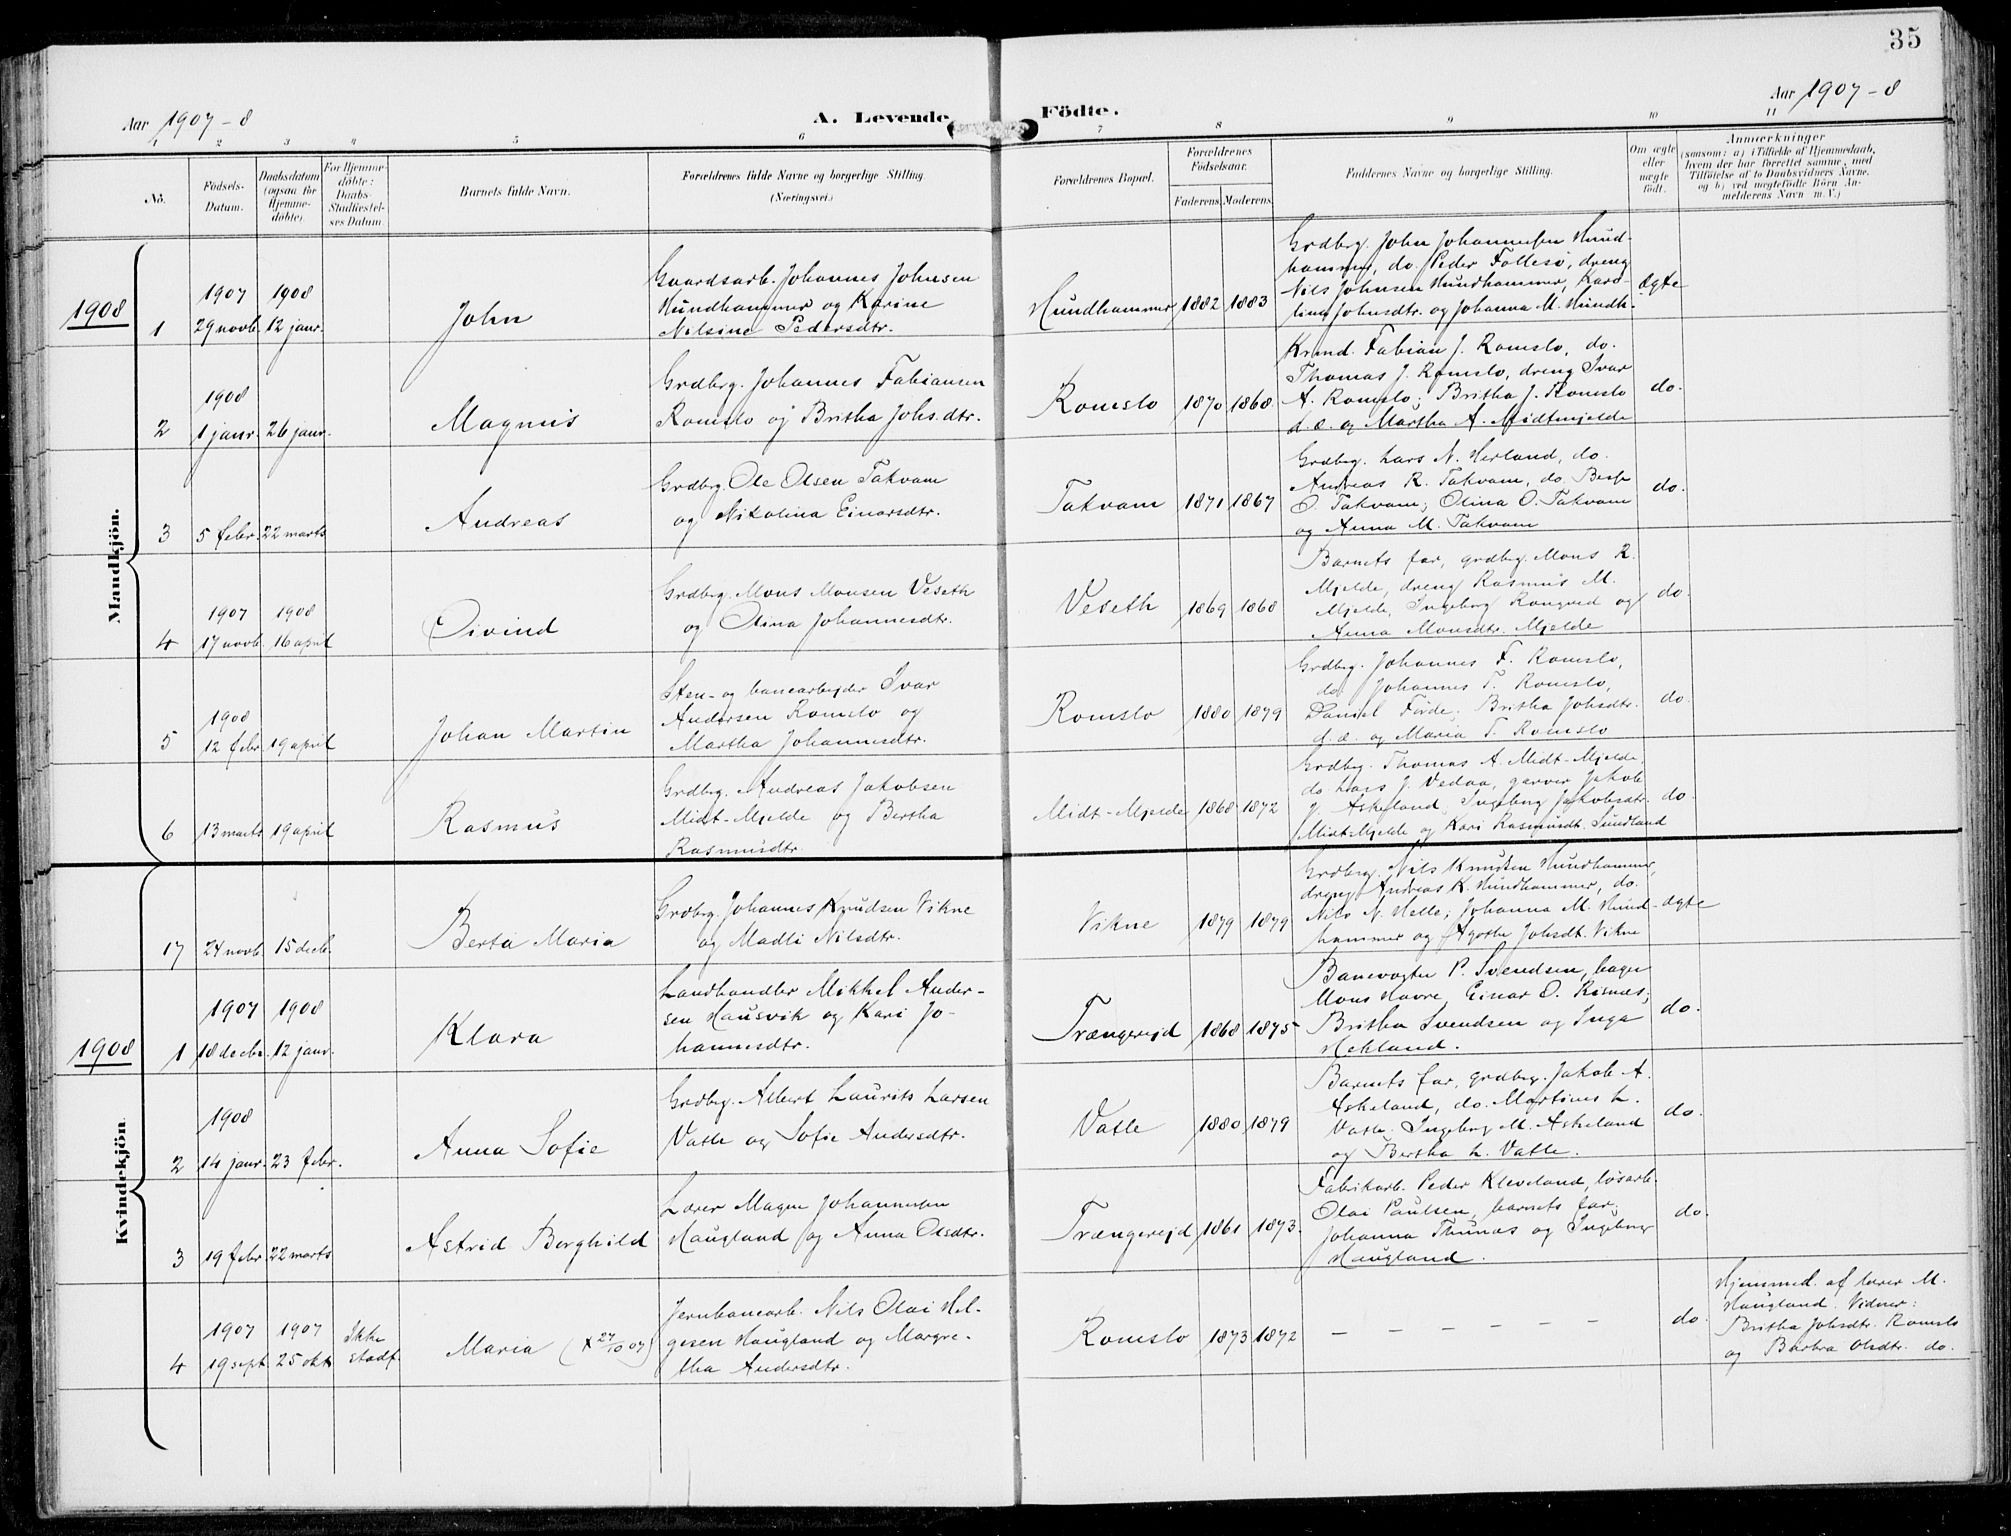 35
Aar 1907-8
A. Levende Födte.
Aar 1907-8
1 2 3 4 5 6 7 8 9 10 11
No.
Födsels-Datum.
Daabsdatum (ogsaa for Hjemme-döbte).
For Hjemme-döbte: Daabs-Stadfæstel-ses Datum.
Barnets fulde Navn.
Forældrenes fulde Navne og borgerlige Stilling.
(Næringsvei.)
Forældrenes Bopæl.
Forældrenes Födselsaar.
Faderens. Moderens.
Faddernes Navne og borgerlige Stilling.
Om ægte eller uægte födt.
Anmærkninger
(saasom: a) i Tilfælde af Hjemmedaab, hvem der har forrettet samme, med Tilföielse af to Daabsvidners Navne, og b) ved uægtefödte Börn Anmelderens Navn m. V.)
Mandkjön.
1908
1
1907 29 novb.
1908 12 janr.
John
Gaardsarb. Johannes Johnsen
Hundhammer og Karine
Nilsine Pedersdtr.
Hundhammer 1882 1883
Grdbrg. John Johannessen Hund-
hammer, do. Peder Follesö, dreng
Nils Johnsen Hundhammer, Karo-
line Johnsdtr. og Johanna M. Hundh.
ægte
2
1908 1 janr.
26 janr.
Magnus
Grdbrg. Johannes Fabiansen
Romslo og Britha Johs.dtr.
Romslo 1870 1868
Krmd. Fabian J. Romslo, do.
Thomas J. Romslo, dreng Ivar
A. Romslo; Britha J. Romslo
d.æ. og Martha A. Midtmjelde
do.
3
5 febr.
22 marts
Andreas
Grdbrg. Ole Olsen Takvam
og Nikolina Einarsdtr.
Takvam 1871 1867
Grdbrg. Lars N. Herland, do.
Andreas R. Takvam, do.
O. Takvam; Olina O. Takvam
og Anna M. Takvam
do.
4
1907 17 novb.
1908 16 april
Oivind
Grdbrg. Mons Monsen Veseth
og Olina Johannesdtr.
Veseth 1869 1868
Barnets far, grdbrg. Mons R.
Mjelde, dreng Rasmus M.
Mjelde, Ingeborg Rongved og
Anna Monsdtr. Mjelde
do.
5
1908 12 febr.
19 april
Johan Martin
Sten- og banearbejder Ivar
Andersen Romslo og
Martha Johannesdtr.
Romslo 1880 1879
Grdbrg. Johannes F. Romslo,
do. Johannes T. Romslo,
Daniel Förde; Britha Johsdtr.
d.æ. og Maria T. Romslo
do.
6
13 marts
19 april
Rasmus
Grdbrg. Andreas Jakobsen
Midt-Mjelde og Bertha
Rasmusdtr.
Midt-Mjelde 1868 1872
Grdbrg. Thomas A. Midt-Mjelde,
do. Lars J. Vedaa, garver Jakob
J. Askeland; Ingeborg Jakobsdtr.
Midt-Mjelde og Kari Rasmusdt. Sundland
do.
Kvindekjön.
17
24 novb.
15 decb.
Berta Maria
Grdbrg. Johannes Knudsen Vikne
og Madli Nilsdtr.
Vikne 1879 1879
Grdbrg. Nils Knutsen Hundhammer,
dreng Andreas K. Hundhammer, do.
Nils N. Helle; Johanna M. Hund-
hammer og Agothe Johsdt. Vikne
ægte
1908
1
1907 18 decbr.
1908 12 janr.
Klara
Landhandler Mikkel Ander-
sen Hausvik og Kari Jo-
hannesdtr.
Trængereid 1868 1875
Banevogter P. Svendsen, bager
Mons Havre, Einar O. Risnes;
Britha Svendsen og Inga
Hekland.
do.
2
1908 14 janr.
23 febr.
Anna Sofie
Grdbrg. Albert Laurits Larsen
Vatle og Sofie Andersdtr.
Vatle 1880 1879
Barnets far, grdbrg. Jakob A.
Askeland, do. Martinus L.
Vatle. Ingeborg M. Askeland
og Bertha L. Vatle.
do.
3
19 febr.
22 marts
Astrid Borghild
Lærer Magne Johannessen
Haugland og Anna Olsdtr.
Trængereid 1861 1873
Fabrikarb. Peder Kleveland, løsarb.
Olai Paulsen, barnets far,
Johanna Thunes og Ingeborg
Haugland.
do.
4
1907 19 sept.
1907 25 okt.
Ikke stadf.
Maria (✝ 27/10 07)
Jernbanearb. Nils Olai Hel-
gesen Haugland og Margre-
tha Andersdtr.
Romslo 1873 1872
– – – – – – –
do.
Hjemmed. af lærer M.
Haugland. Vidner:
Britha Johsdtr. Romslo
og Barbra Olsdtr. do.